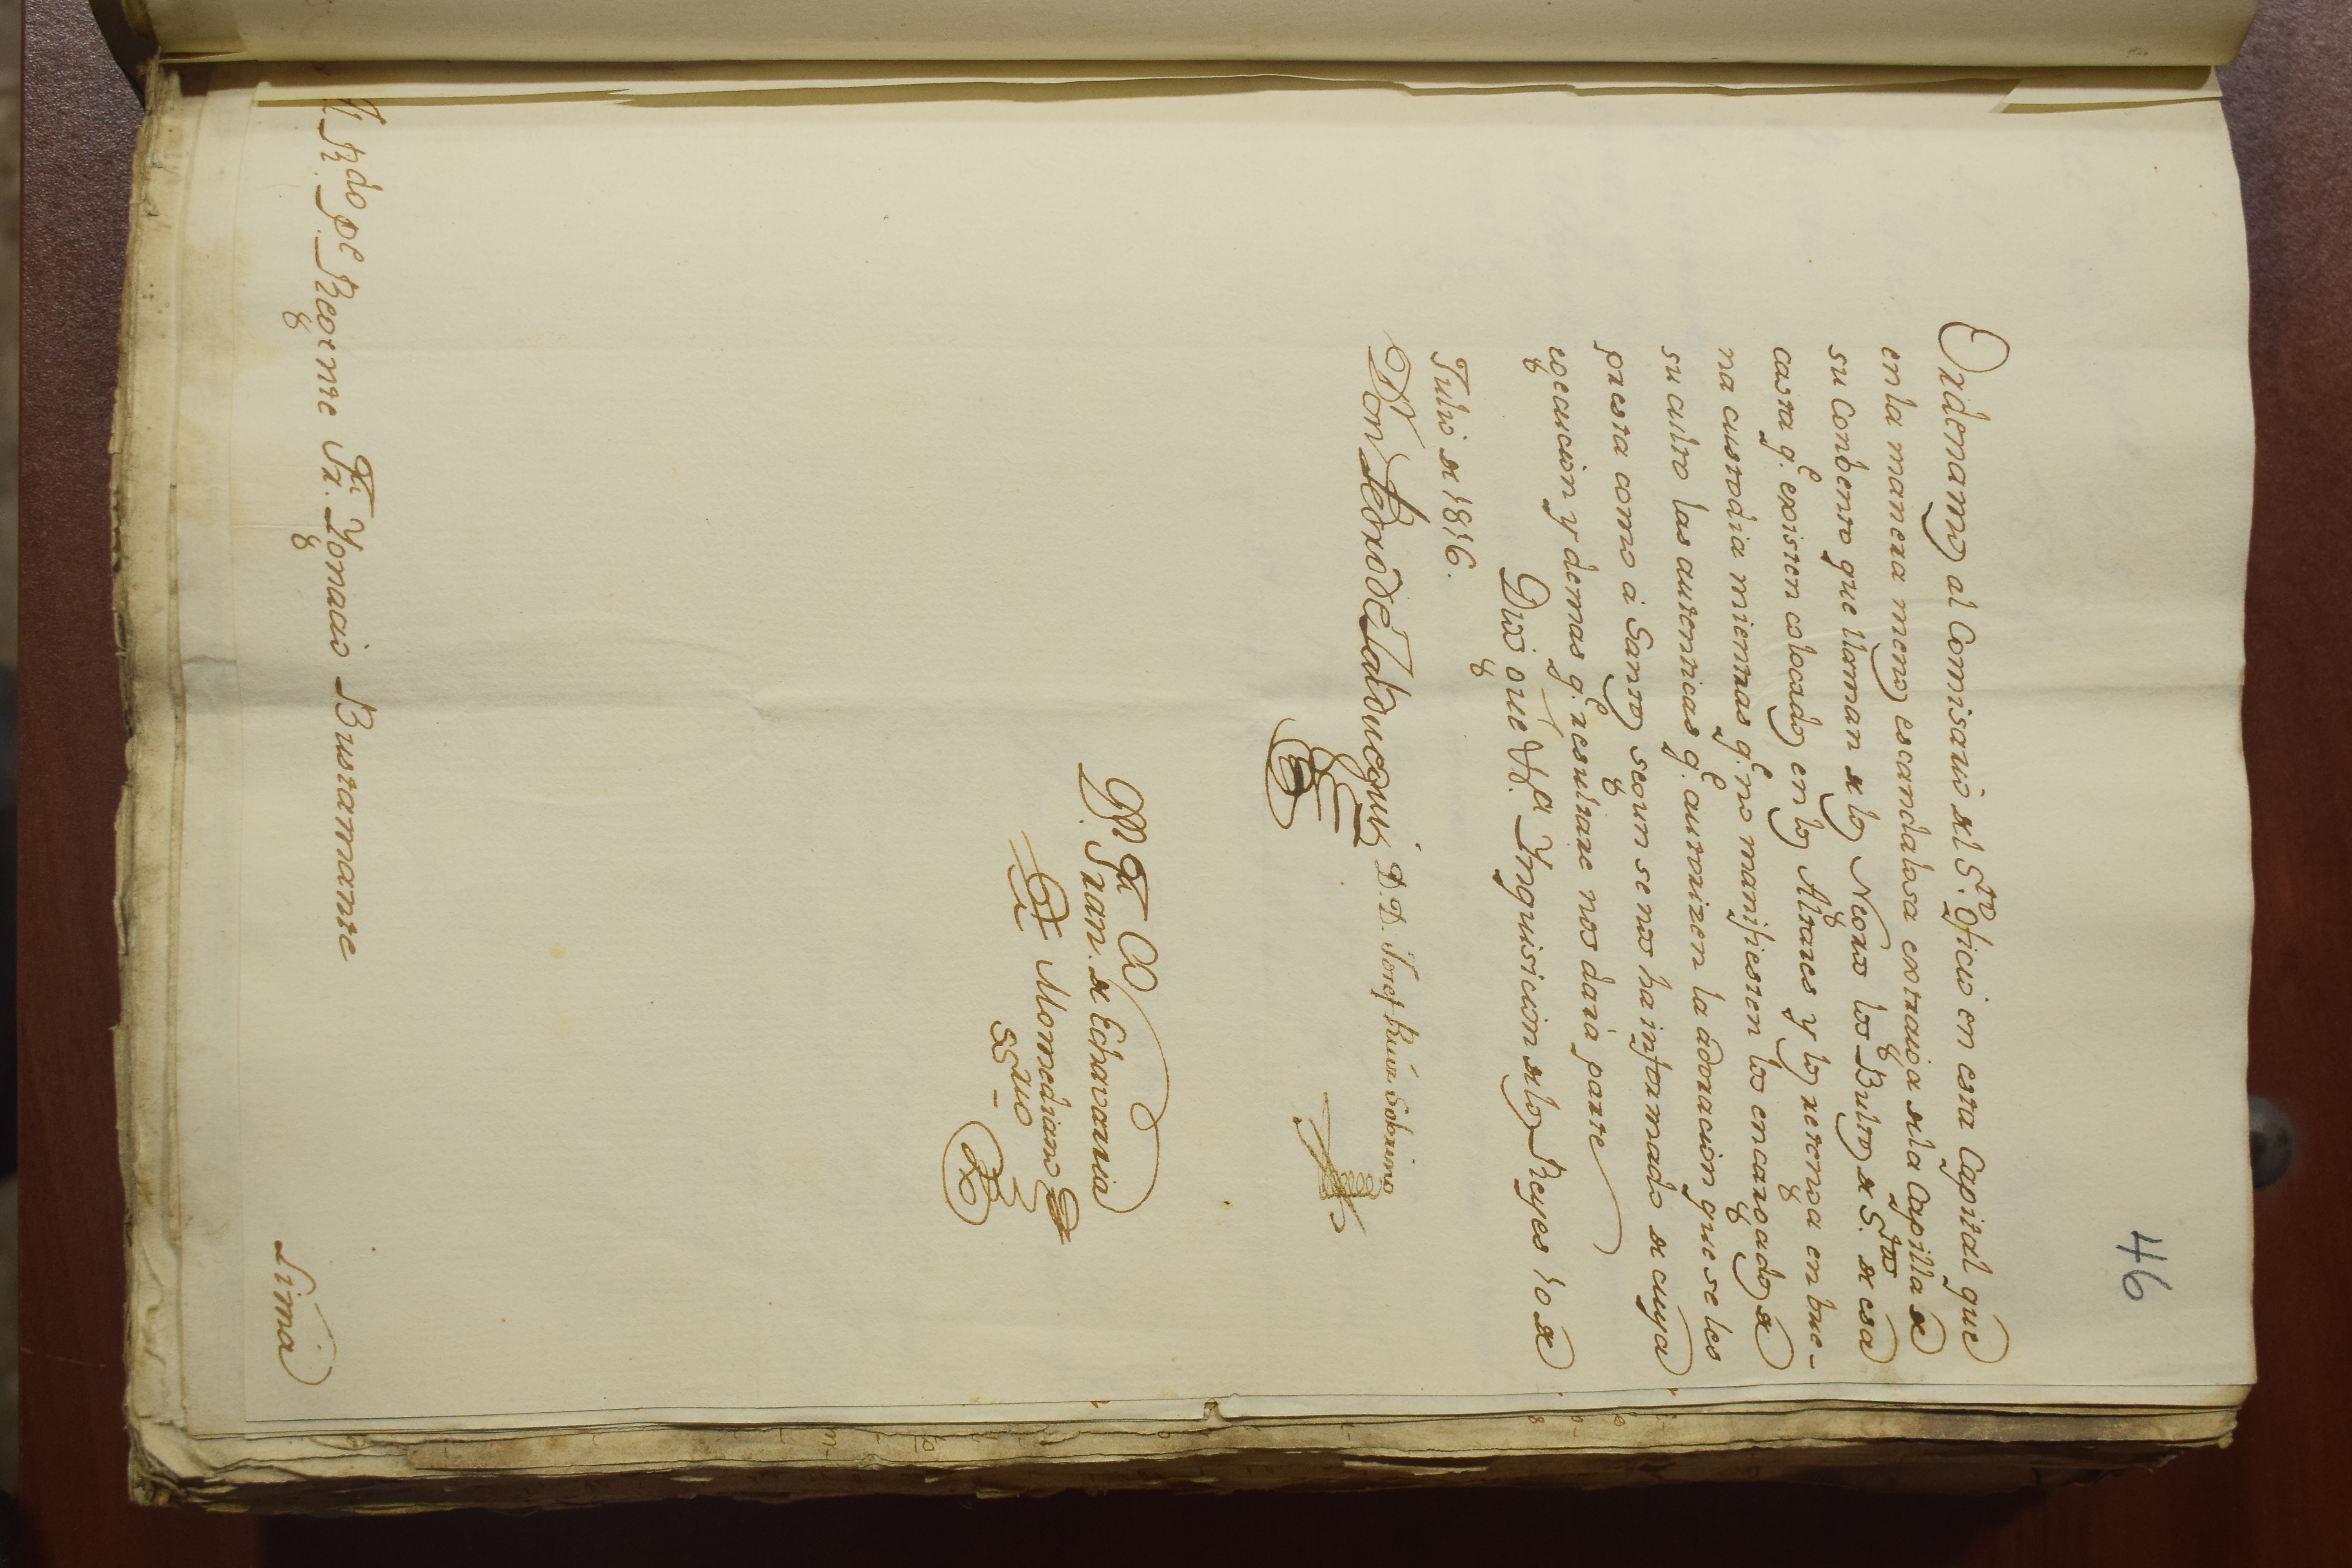 46
Ordenamos al Comisario del S.to Oficio en esta Capital que
en la manera menos escandalosa extraiga de la Capilla de
su Conbento que llaman de los Negros los Bultos de S.tos de esa
casta q.e existen colocados en los Altares y los retenga en bue-
na custodia mientras q.e no manifiesten los encargados de
su culto las autenticas q.e autorizen la adoracion que se les
presta como á Santos segun se nos ha informado de cuya
egecucion y demas q.e resultare nos dará parte
Dios gue V.P. Ynquisicion de los Reyes 10 de
Julio de 1816.
D.or Pedro Zalduegui D. D. Josef Ruiz Sobrino
P. M. del S. O.
Fran. de Echavarria
Momediano
ssrio
M. R.do P.e Regente Fr. Ygnacio Bustamante
Lima